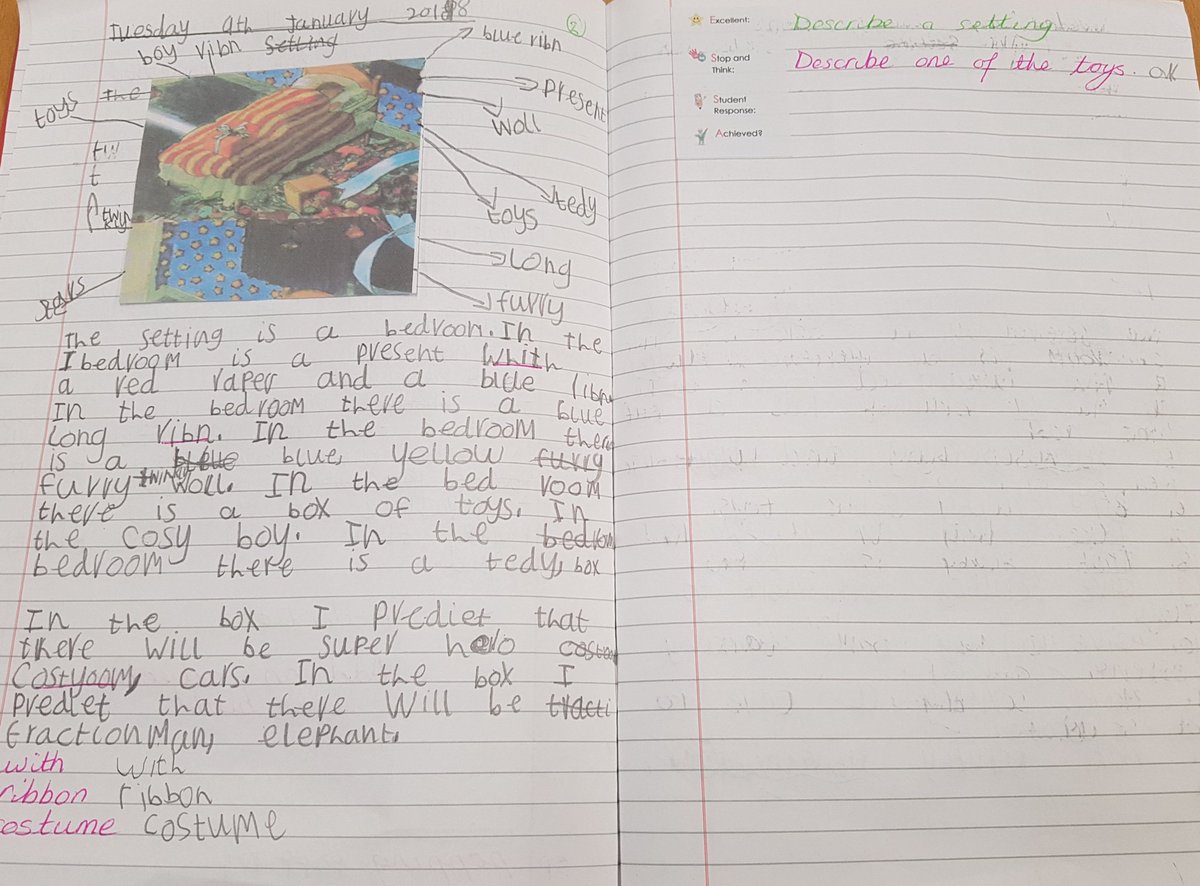 Tuesday 9th January 2018
boy ribn Setting
blue ribn
②
present
toys the
woll
tw
t
twiny
tedy
toys
Long
stars
furry
The setting is a bedroom. In the
I bedroom is a present whith
a red raper and a blue libn
In the bedroom there is a blue
long ribn. In the bedroom there
is a bleue blue, yellow furry
furry twiny woll. In the bed room
there is a box of toys. In
the cosy boy. In the bedrom
bedroom there is a tedy, box
In the box I prediet that
there will be super hero costoo
Costyoom, cars. In the box I
prediet that there Will be tracti
tractionMan, elephant.
with with
ribbon ribbon
costume costume
Excellent: Describe a setting
Stop and Think: Describe one of the toys. OK
Student Response:
Achieved?